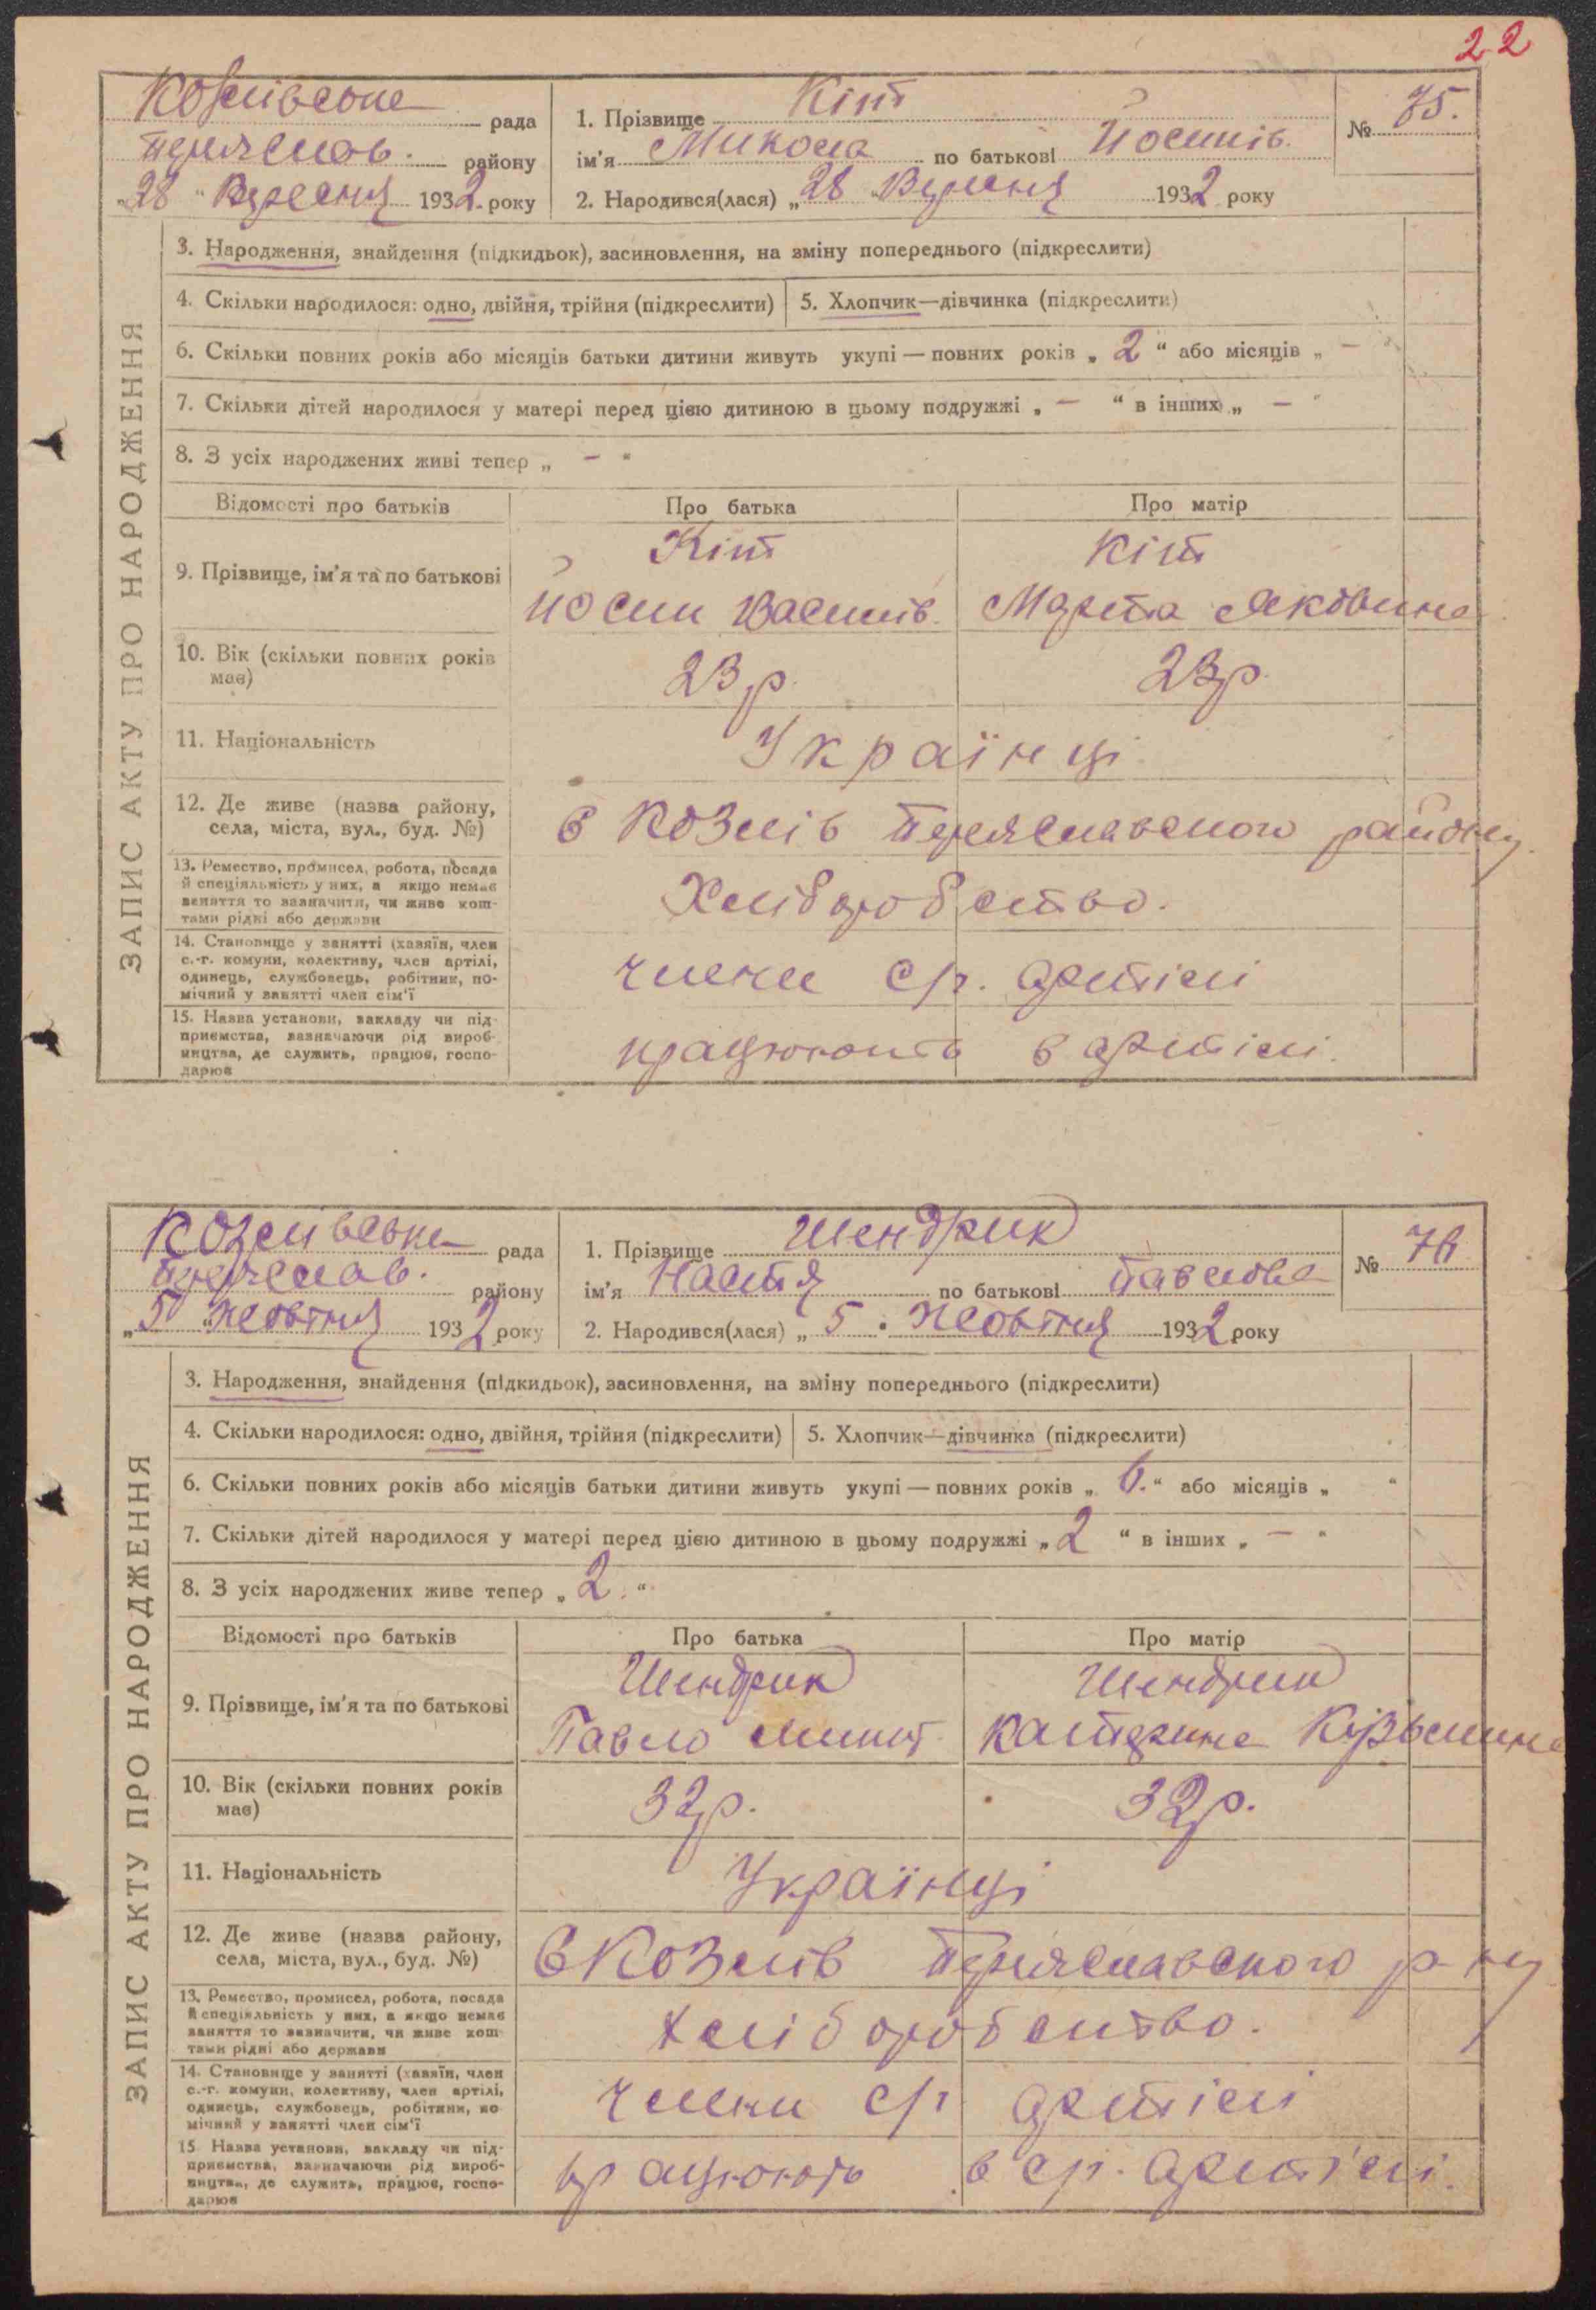 22
Козлівська рада
Переяслав. району
„28“ Вересня 1932 року
1. Прізвище Кіт
ім'я Микола по батькові Йосипів.
2. Народився(лася) „28“ Вересня 1932 року
№ 75.
ЗАПИС АКТУ ПРО НАРОДЖЕННЯ
3. Народження, знайдення (підкидьок), засиновлення, на зміну попереднього (підкреслити)
4. Скільки народилося: одно, двійня, трійня (підкреслити)
5. Хлопчик—дівчинка (підкреслити)
6. Скільки повних років або місяців батьки дитини живуть укупі — повних років „2“ або місяців „ —
7. Скільки дітей народилося у матері перед цією дитиною в цьому подружжі „ — “ в інших „ — “
8. З усіх народжених живі тепер „ — “
Відомості про батьків
Про батька
Про матір
9. Прізвище, ім'я та по батькові
Кіт
Йосип Васильів.
Кіт
Марта Яковина
10. Вік (скільки повних років
має)
23 р.
23 р.
11. Національність
Українці
12. Де живе (назва району,
села, міста, вул., буд. №)
в Козлів Переяславского району.
13. Ремество, промисел, робота, посада
й спеціяльність у них, а якщо немає
заняття то зазначити, чи живе кош-
тами рідні або держави
Хліборобство.
14. Становище у занятті (хазяїн, член
с.-г. комуни, колективу, член артілі,
одинець, службовець, робітник, по-
мічний у занятті член сім'ї
члени ср. артілі
15. Назва установи, закладу чи під-
приємства, зазначаючи рід вироб-
ництва, де служить, працює, госпо-
дарює
працюють в артілі.
Козлівська рада
Переяслав. району
„5“ Жовтня 1932 року
1. Прізвище Шендрик
ім'я Настя по батькові Павлова
2. Народився(лася) „5“ Жовтня 1932 року
№ 76
ЗАПИС АКТУ ПРО НАРОДЖЕННЯ
3. Народження, знайдення (підкидьок), засиновлення, на зміну попереднього (підкреслити)
4. Скільки народилося: одно, двійня, трійня (підкреслити)
5. Хлопчик—дівчинка (підкреслити)
6. Скільки повних років або місяців батьки дитини живуть укупі — повних років „6.“ або місяців „ “
7. Скільки дітей народилося у матері перед цією дитиною в цьому подружжі „2“ в інших „ — “
8. З усіх народжених живе тепер „2.“
Відомості про батьків
Про батька
Про матір
9. Прізвище, ім'я та по батькові
Шендрик
Павло
Шендрик
Катерина Кузьмина
10. Вік (скільки повних років
має)
32 р.
32 р.
11. Національність
Українці
12. Де живе (назва району,
села, міста, вул., буд. №)
в Козлів Переяславского р-ну
13. Ремество, промисел, робота, посада
й спеціяльність у них, а якщо немає
заняття то зазначити, чи живе кош-
тами рідні або держави
Хліборобство.
14. Становище у занятті (хазяїн, член
с.-г. комуни, колективу, член артілі,
одинець, службовець, робітник, по-
мічний у занятті член сім'ї
члени ср. артілі
15 Назва установи, закладу чи під-
приємства, зазначаючи рід вироб-
ництва, де служить, працює, госпо-
дарює
працюють в ср. артілі.